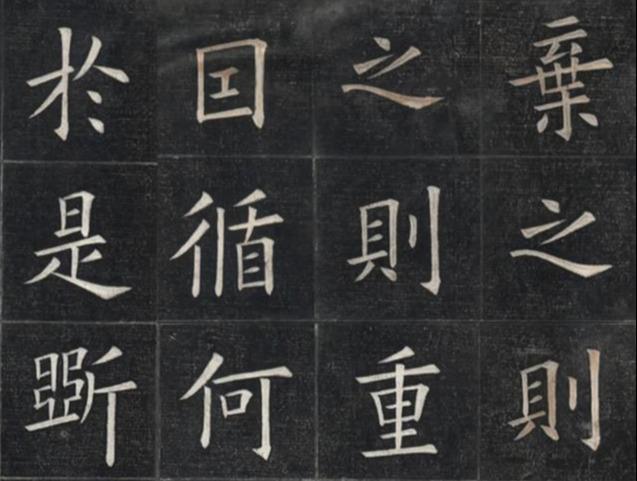 棄之則
之則重
囙循何
於是斲